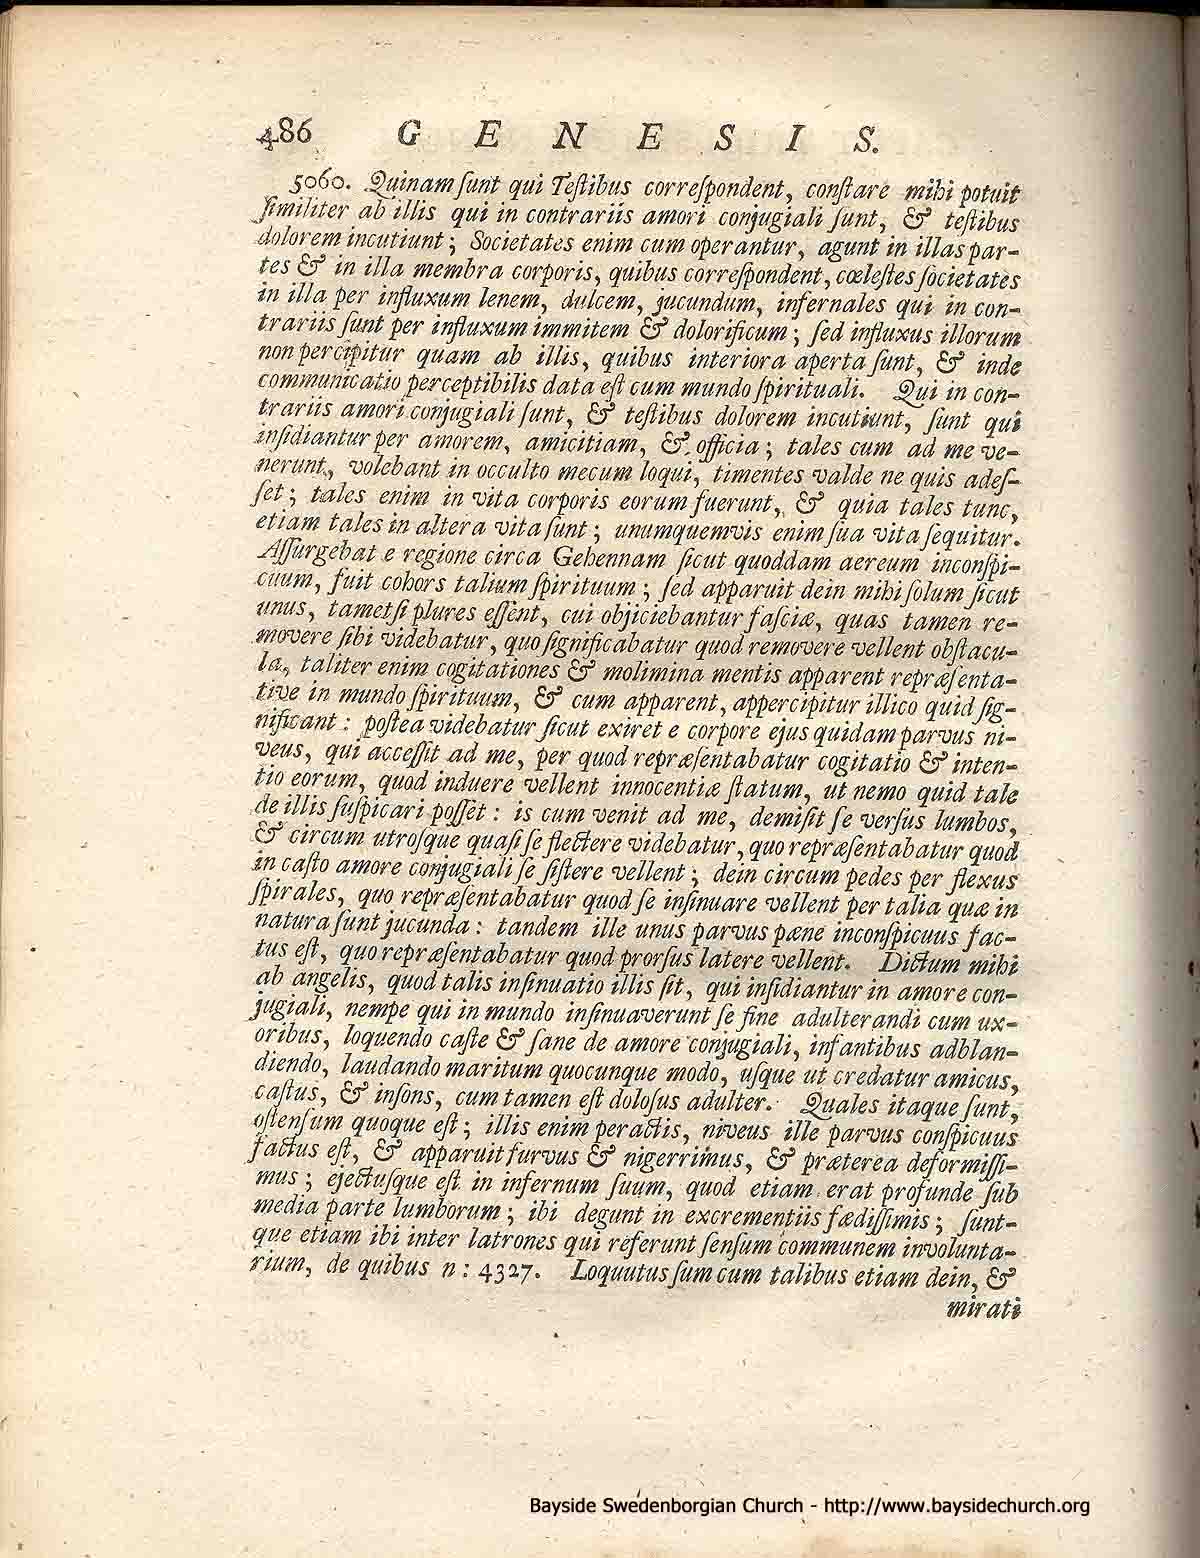 486 GENESIS.
5060. Quinam ſunt qui Teſtibus correſpondent, conſtare mihi potuit
ſimiliter ab illis qui in contrariis amori conjugiali ſunt, & teſtibus
dolorem incutiunt; Societates enim cum operantur, agunt in illas par-
tes & in illa membra corporis, quibus correſpondent, cœleſtes ſocietates
in illa per influxum lenem, dulcem, jucundum, infernales qui in con-
trariis ſunt per influxum immitem & dolorificum; ſed influxus illorum
non percipitur quam ab illis, quibus interiora aperta ſunt, & inde
communicatio perceptibilis data eſt cum mundo ſpirituali. Qui in con-
trariis amori conjugiali ſunt, & teſtibus dolorem incutiunt, ſunt qui
inſidiantur per amorem, amicitiam, & officia; tales cum ad me ve-
nerunt, volebant in occulto mecum loqui, timentes valde ne quis adeſ-
ſet; tales enim in vita corporis eorum fuerunt, & quia tales tunc,
etiam tales in altera vita ſunt; unumquemvis enim ſua vita ſequitur.
Aſſurgebat e regione circa Gehennam ſicut quoddam aereum inconſpi-
cuum, fuit cohors talium ſpirituum; ſed apparuit dein mihi ſolum ſicut
unus, tametſi plures eſſent, cui objiciebantur faſciæ, quas tamen re-
movere ſibi videbatur, quo ſignificabatur quod removere vellent obſtacu-
la, taliter enim cogitationes & molimina mentis apparent repræſenta-
tive in mundo ſpirituum, & cum apparent, appercipitur illico quid ſig-
nificant: poſtea videbatur ſicut exiret e corpore ejus quidam parvus ni-
veus, qui acceſſit ad me, per quod repræſentabatur cogitatio & inten-
tio eorum, quod induere vellent innocentiæ ſtatum, ut nemo quid tale
de illis ſuſpicari poſſet: is cum venit ad me, demiſit ſe verſus lumbos,
& circum utroſque quaſi ſe flectere videbatur, quo repræſentabatur quod
in caſto amore conjugiali ſe ſiſtere vellent; dein circum pedes per flexus
ſpirales, quo repræſentabatur quod ſe inſinuare vellent per talia quæ in
natura ſunt jucunda: tandem ille unus parvus pæne inconſpicuus fac-
tus eſt, quo repræſentabatur quod prorſus latere vellent. Dictum mihi
ab angelis, quod talis inſinuatio illis ſit, qui inſidiantur in amore con-
jugiali, nempe qui in mundo inſinuaverunt ſe fine adulterandi cum ux-
oribus, loquendo caſte & ſane de amore conjugiali, infantibus adblan-
diendo, laudando maritum quocunque modo, uſque ut credatur amicus,
caſtus, & inſons, cum tamen eſt doloſus adulter. Quales itaque ſunt,
oſtenſum quoque eſt; illis enim peractis, niveus ille parvus conſpicuus
factus eſt, & apparuit furvus & nigerrimus, & præterea deformiſſi-
mus; ejectuſque eſt in infernum ſuum, quod etiam erat profunde ſub
media parte lumborum; ibi degunt in excrementiis fœdiſſimis; ſunt-
que etiam ibi inter latrones qui referunt ſenſum communem involunta-
rium, de quibus n: 4327. Loquutus ſum cum talibus etiam dein, &
mirati
Bayside Swedenborgian Church - http://www.baysidechurch.org